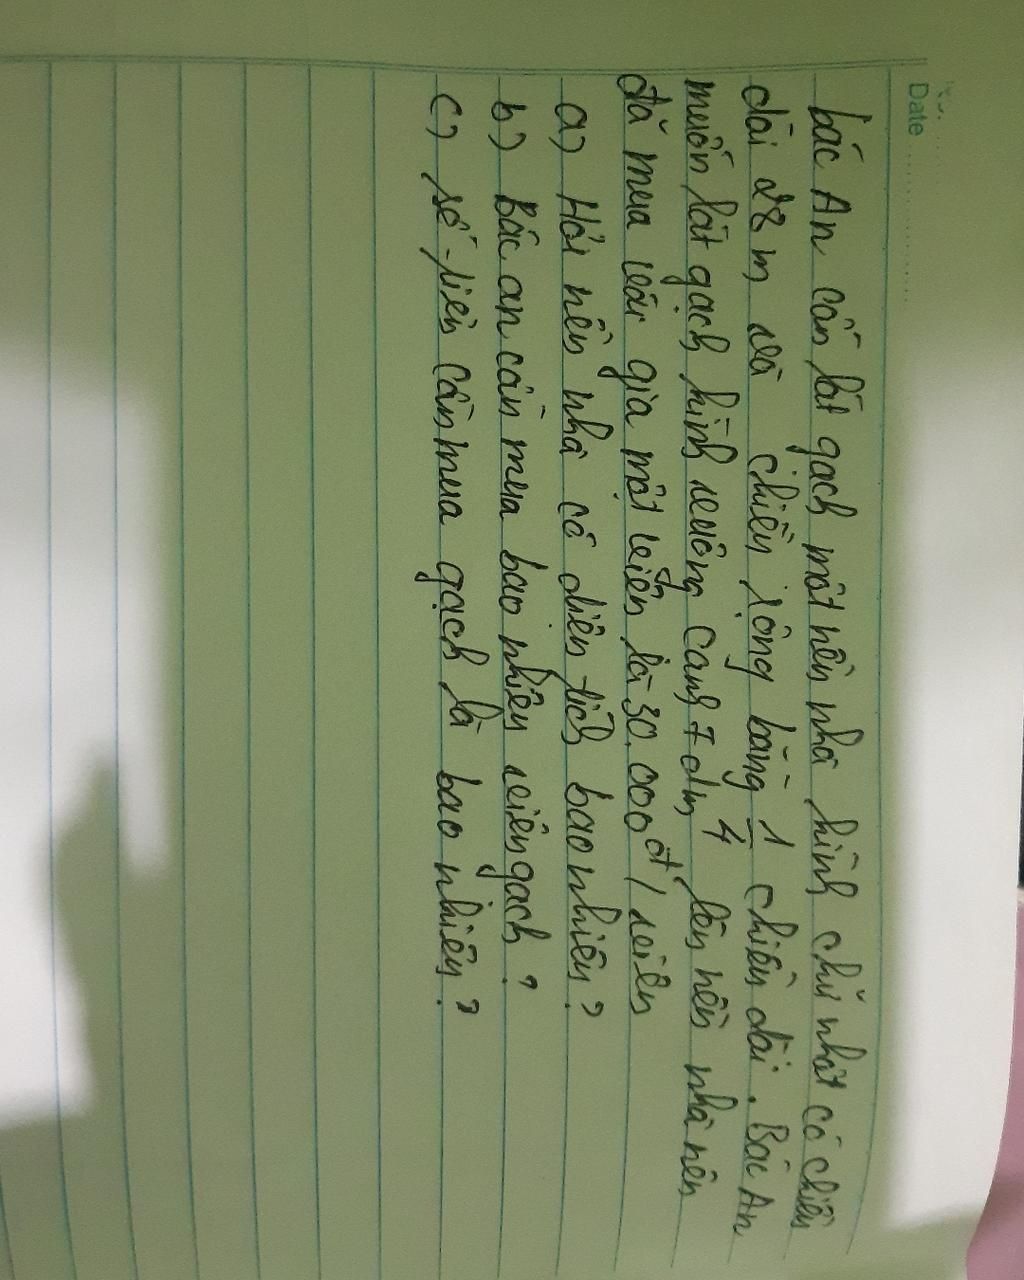 Date
bác An cần lát gạch một nền nhà hình chữ nhật có chiều
dài 28 m và chiều rộng bằng 1/4 chiều dài. Bác An
muốn lát gạch hình vuông cạnh 7 dm lên nền nhà nên
đã mua với giá một viên là 30.000đ / viên
a) Hỏi nền nhà có diện tích bao nhiêu?
b) Bác an cần mua bao nhiêu viên gạch?
c) số tiền cần mua gạch là bao nhiêu?